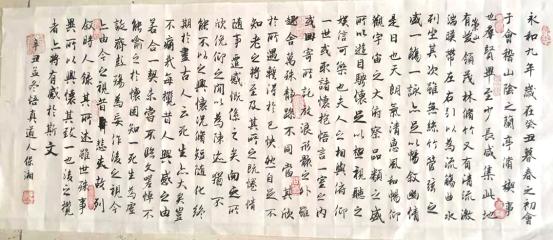 永和九年歲在癸丑暮春之初會
于會稽山陰之蘭亭脩禊事
也羣賢畢至少長咸集此地
有崇領茂林脩竹又有清流激
湍暎帶左右引以為流觴曲水
列坐其次雖無絲竹管弦之
盛一觴一詠亦足以暢敘幽情
是日也天朗氣清惠風和暢仰
觀宇宙之大俯察品類之盛
所以遊目騁懷足以極視聽之
娛信可樂也夫人之相與俯仰
一世或取諸懷抱悟言一室之內
或因寄所託放浪形骸之外雖
趣舍萬殊靜躁不同當其欣
於所遇暫得於己快然自足不
知老之將至及其所之既惓情
隨事遷感慨係之矣向之所
欣俛仰之間以為陳迹猶不
能不以之興懷況脩短隨化終
期於盡古人云死生亦大矣豈
不痛哉每攬昔人興感之由
若合一契未嘗不臨文嗟悼不
能喻之於懷固知一死生為虛
誕齊彭殤為妄作後之視今
上由今之視昔悲夫故列
敘時人錄其所述雖世殊事
異所以興懷其致一也後之攬
者上將有感於斯文
辛丑孟冬悟真道人保湘